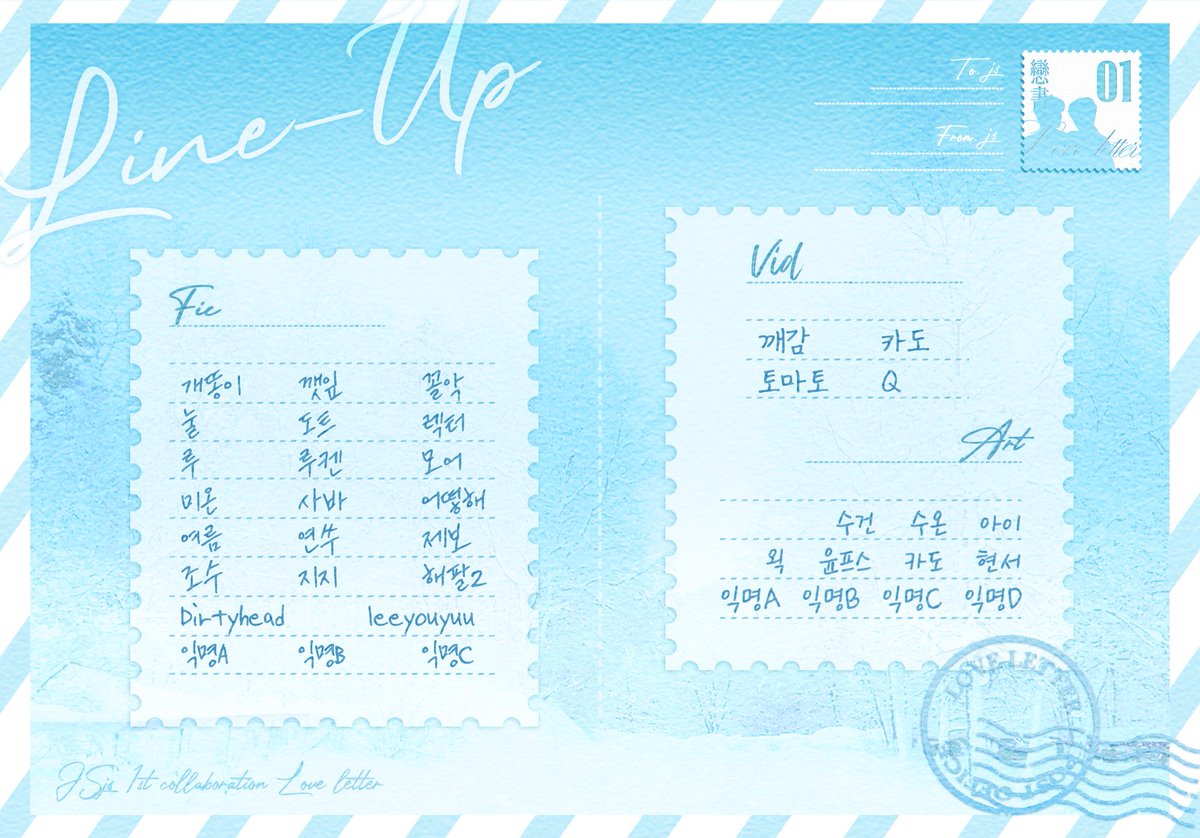 Line-Up
To. js
From. js
戀書
01
Love letter
Fic
개똥이 깻잎 꼴악
눌 도트 렉터
루 루켄 모어
미온 사바 어떻해
여름 연쑤 제보
조수 지지 해팔2
Dirtyhead leeyouyuu
익명A 익명B 익명C
Vid
깨감 카도
토마토 Q
Art
수건 수온 아이
왹 윤프스 카도 현서
익명A 익명B 익명C 익명D
LOVE LETTER
POST OFFICE
1st collaboration Love letter